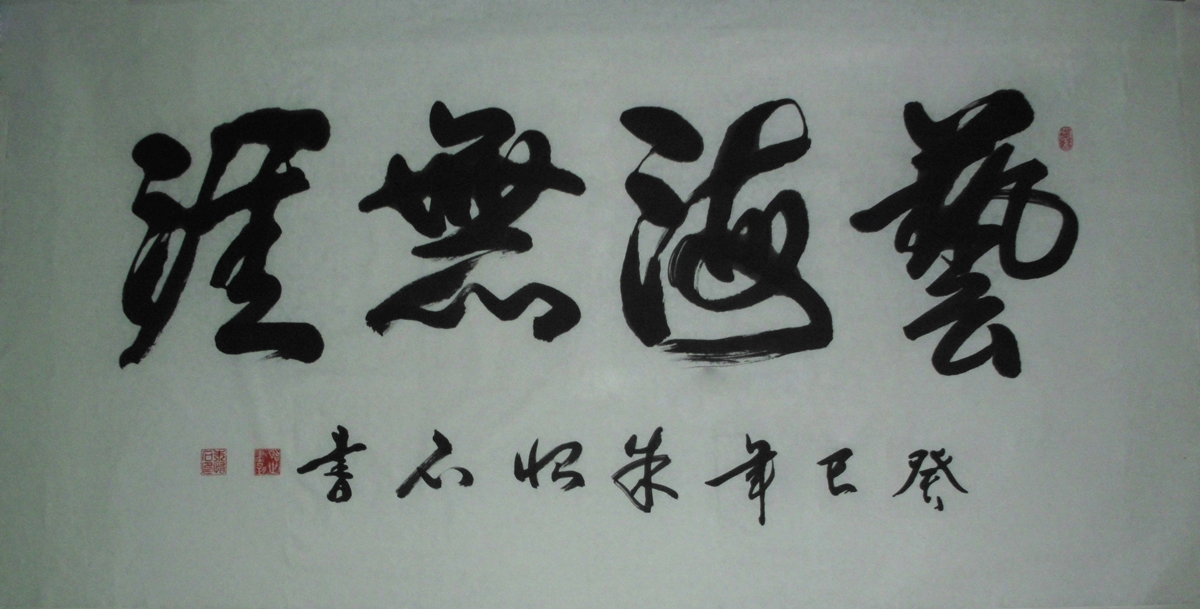 藝海無涯
癸巳年朱石書